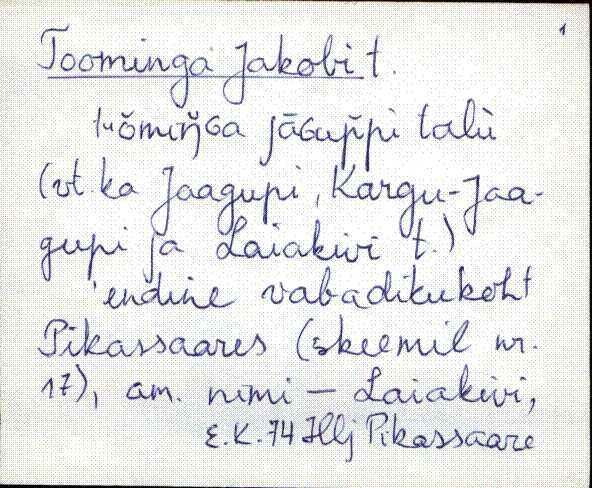 1
Toominga Jakobi t.
jāɢup̆pi talu
(vt. ka Jaagupi, Kargu-Jaa-
gupi ja Laiakivi t.)
endine vabadikukoht
Pikassaares (skeemil nr.
17), am. nimi – Laiakivi,
E.K. 74 Hlj Pikassaare